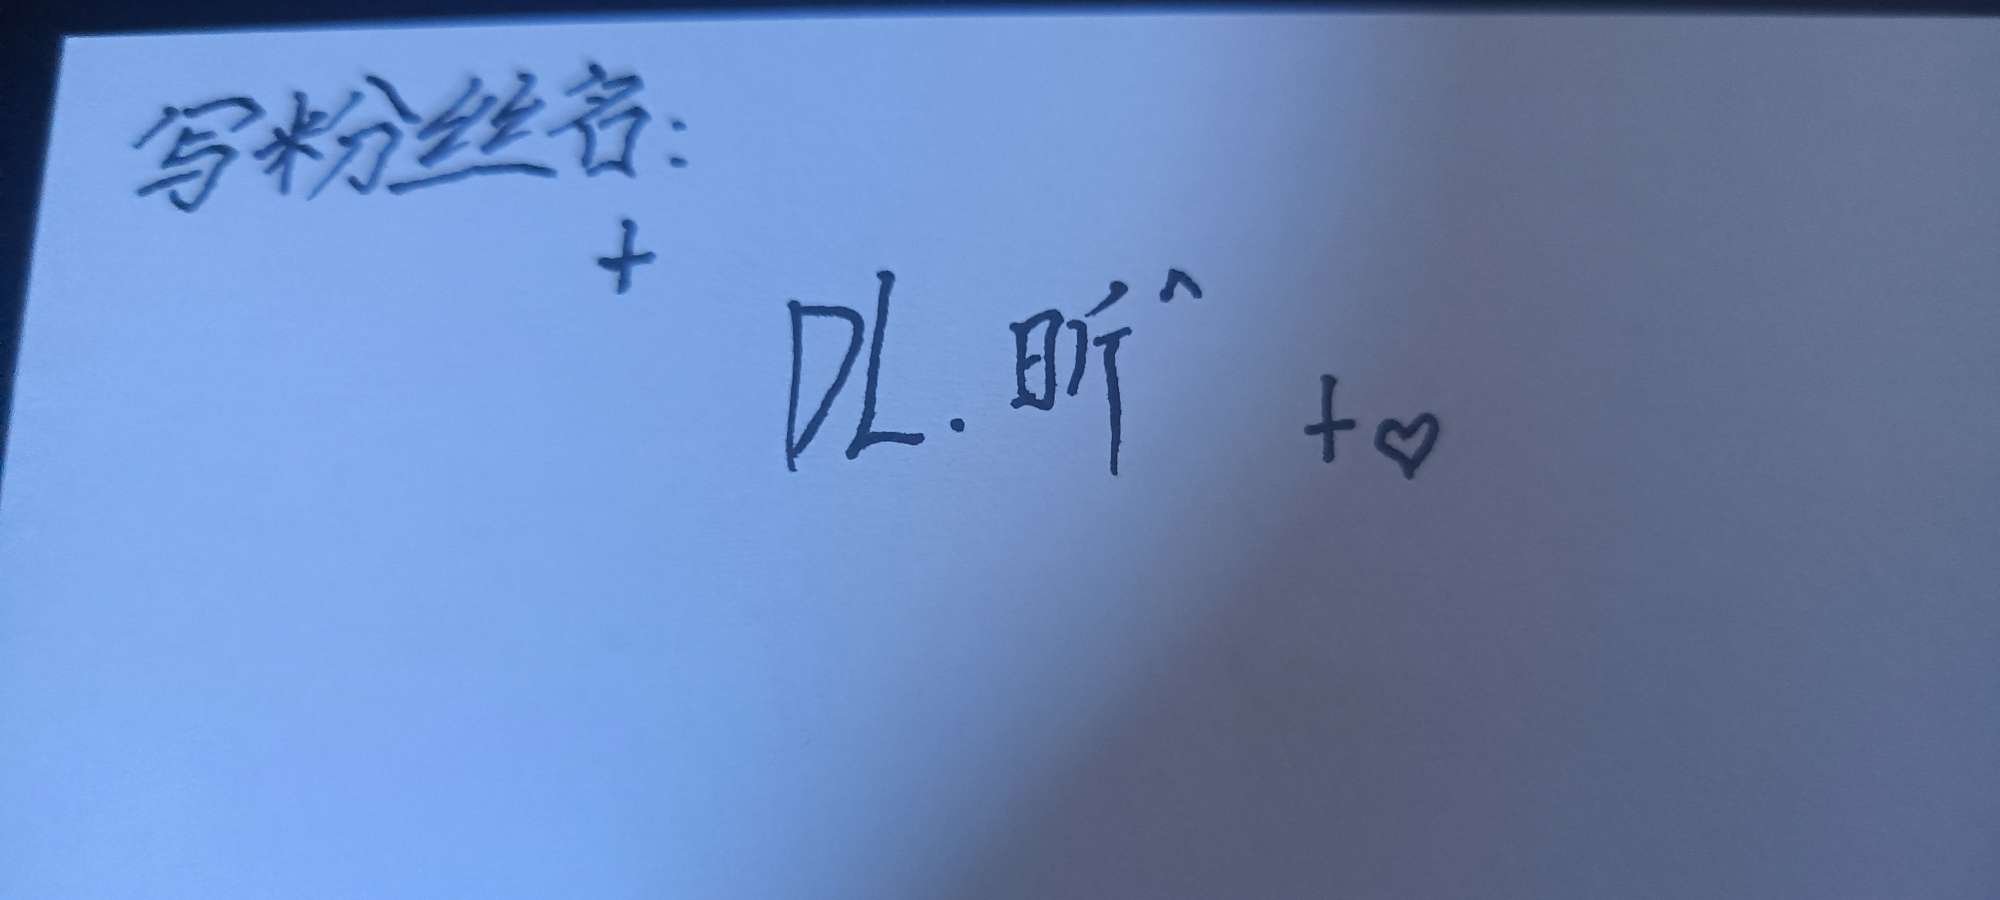 写粉丝名:
+
DL.昕^
+♡